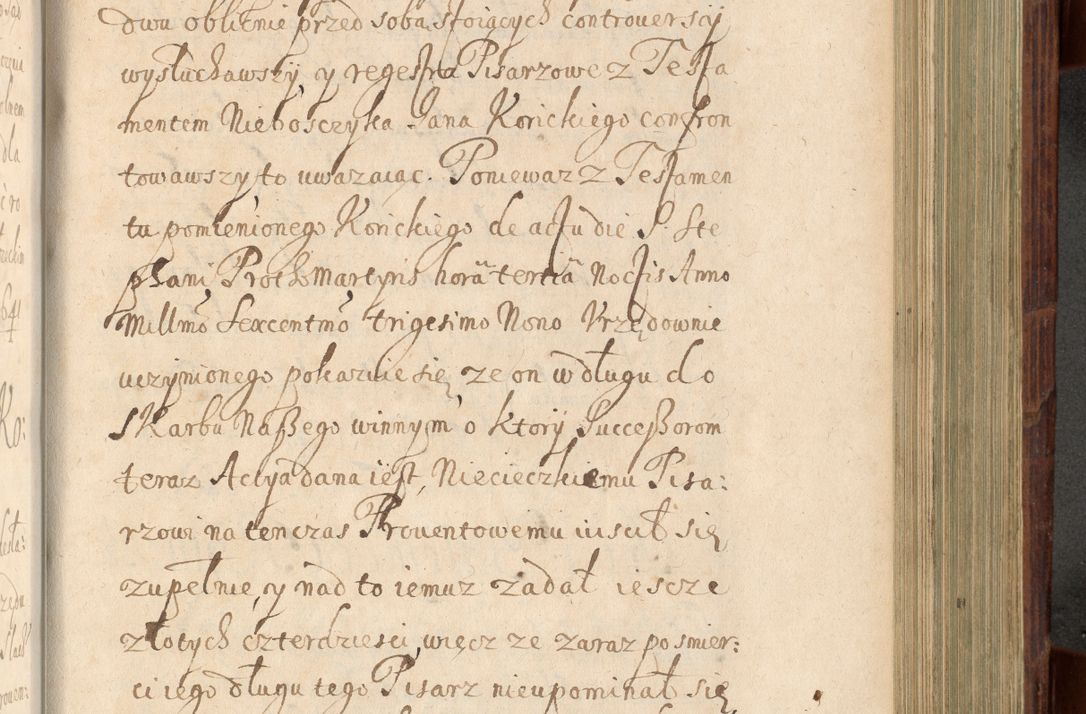 dwu oblicznie przed sobą stoiących controuersiy
wysłuchawszy y regestra Pisarzowe z Testa
mentem Nieboszczyka Jana Korickiego confron
towawszy to uwazaiąc. Poniewaz z Testamen
tu pomienionego Korickiego de actu die S. Ste
phani Prothomartyris horâ tertiâ Noctis Anno
Millmo Sexcentmo trigesimo Nono Vrzędownie
uczynionego pokazuie się, ze on w długu do
Skarbu Naßego winnym o ktory Succeßorom
teraz Actya dana iest, Niecieczkiemu Pisa:
rzowi na tenczas Prouentowemu uiscił się
zupełnie, y nad to iemuz zadał iescze
złotych czterdziesci, więcz ze zaraz po smier:
ci iego długu tego Pisarz nieupominał się